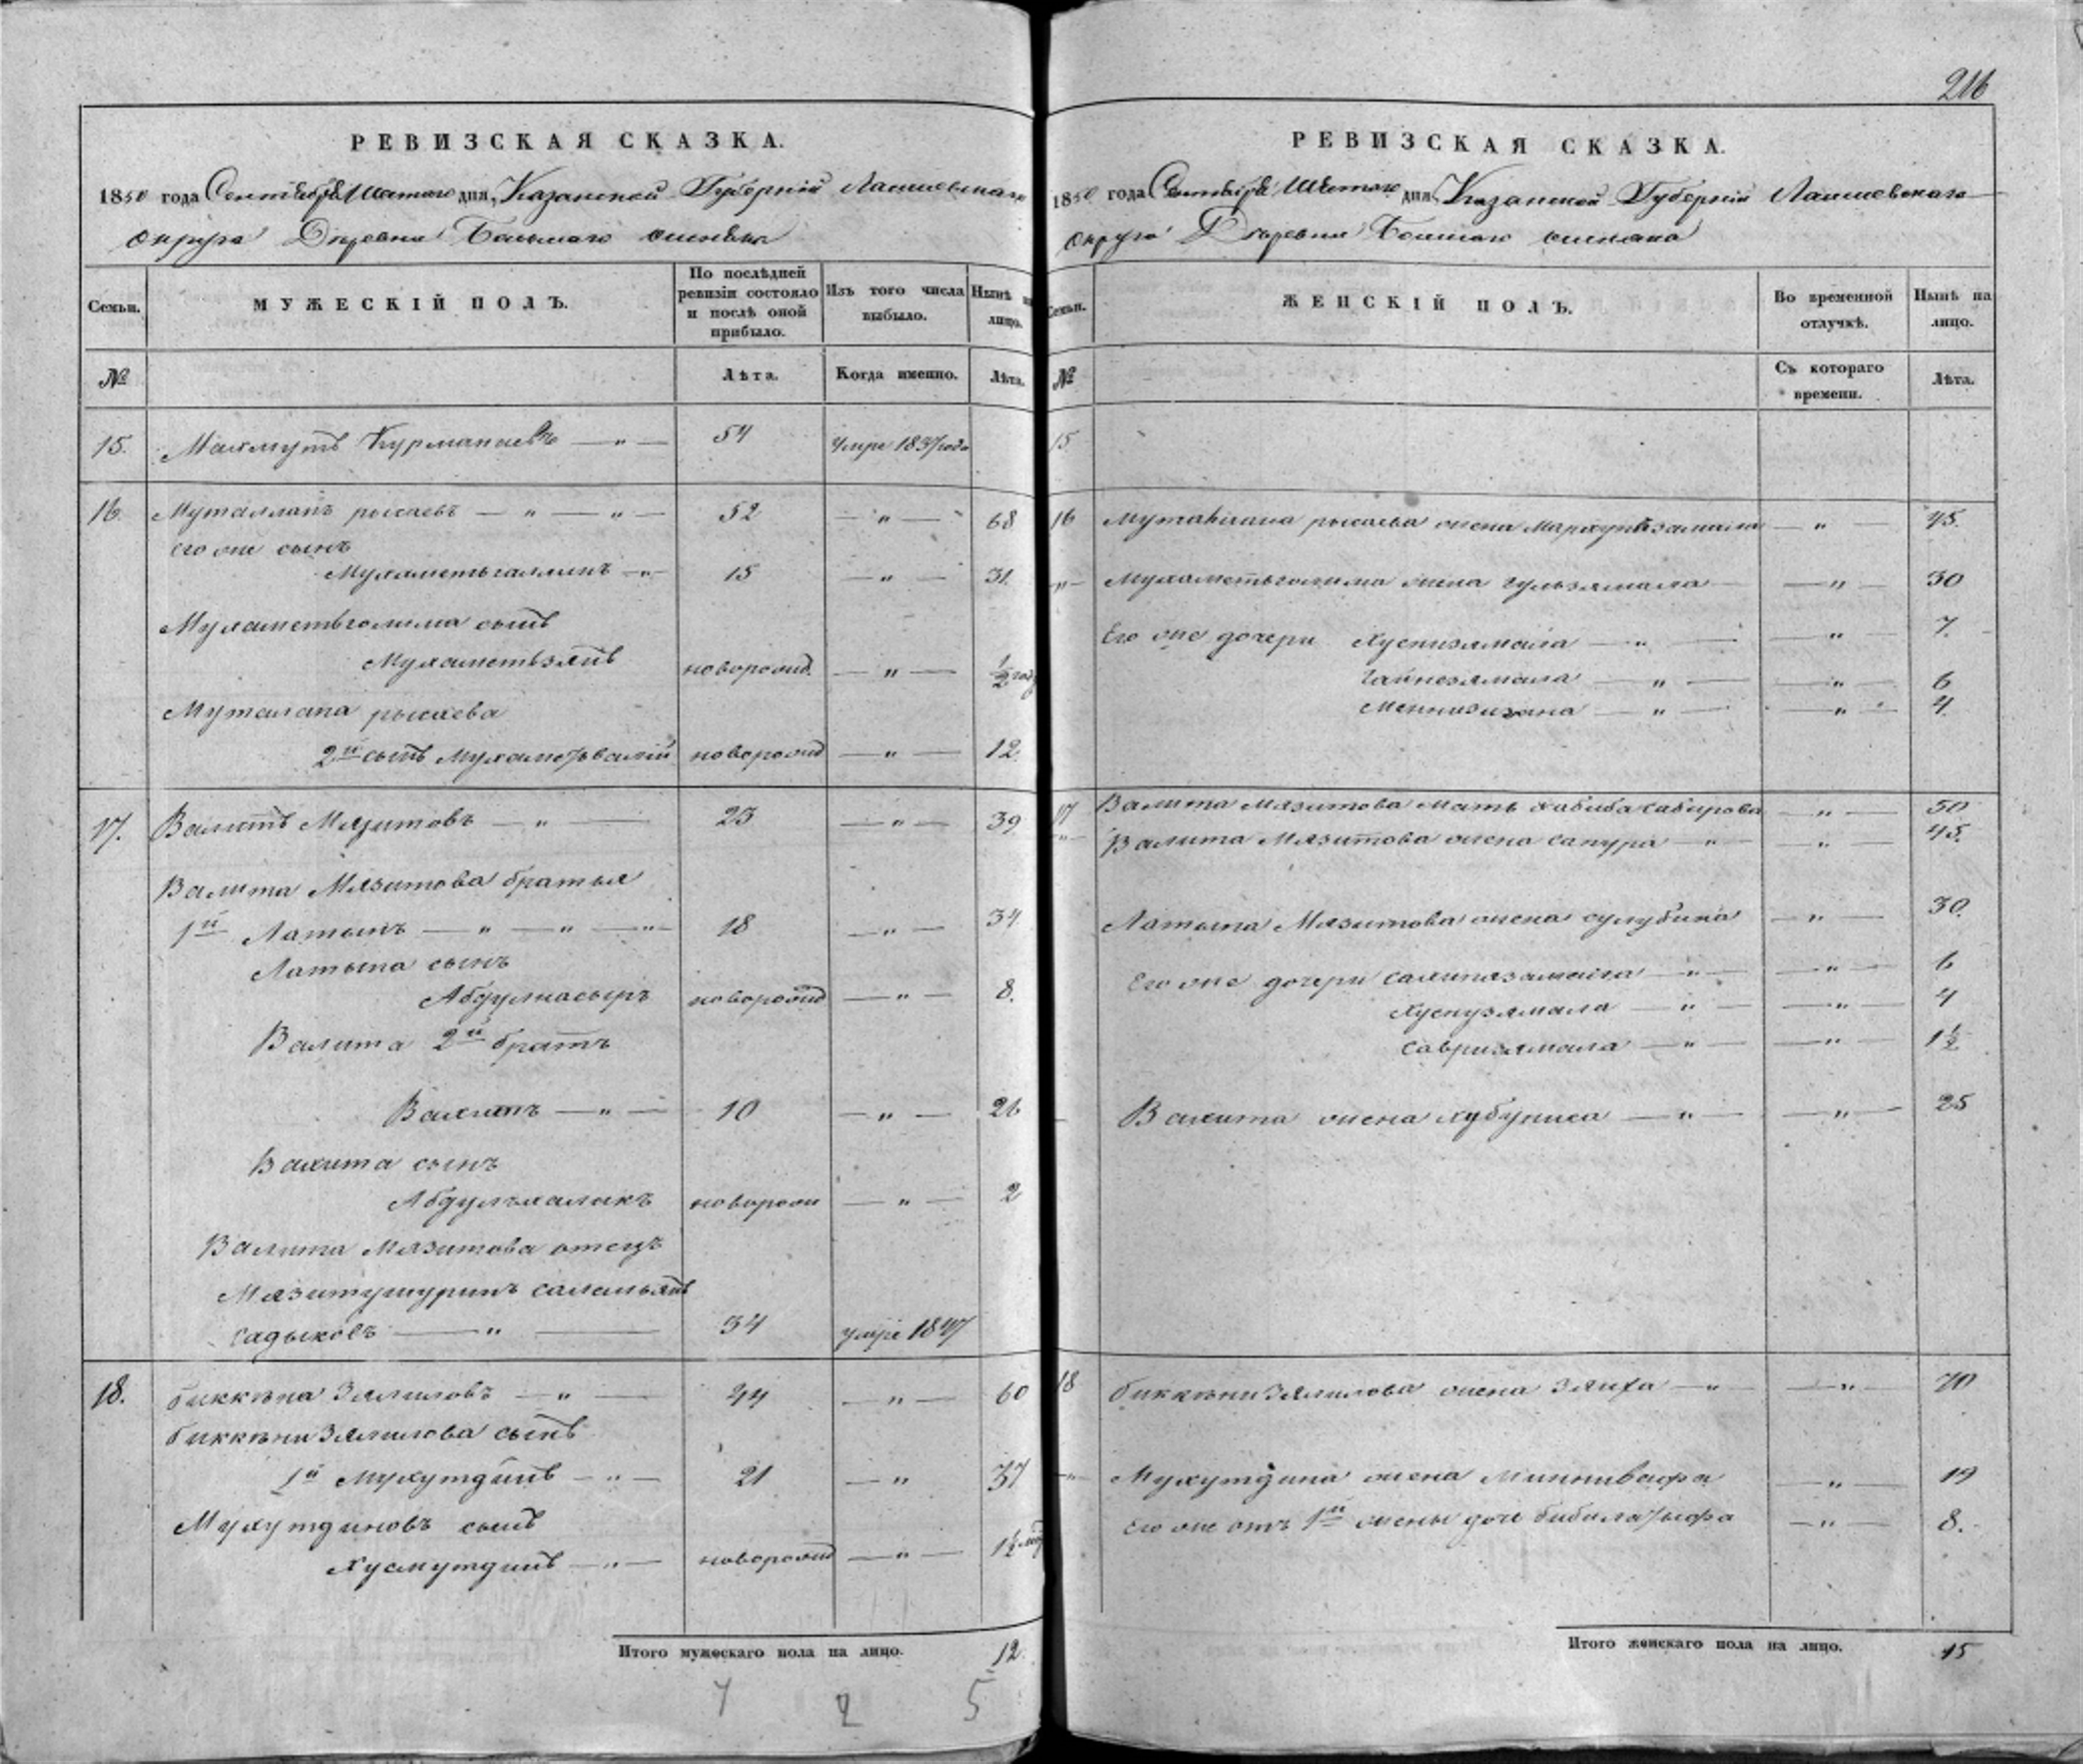 216
РЕВИЗСКАЯ СКАЗКА.
1850 года Сентября Шестаго дня, Казанской Губернiи Лаишевскаго
округа Деревни Большаго
Семьи.
МУЖЕСКІЙ ПОЛЪ.
По послѣдней ревизіи состояло и послѣ оной прибыло.
Изъ того числа выбыло.
Нынѣ на лицо.
№
Лѣта.
Когда именно.
Лѣта.
15. Махмутъ Курманаевъ — „ — 54 Умре 1837 года
16. Муталлапъ рысаевъ — „ — „ — 52 — „ — 68
его же сынъ
Мухаметьгалимъ — „ — 15 — „ — 31.
Мухаметьголима сынъ
Мухаметьзянъ новорожд. — „ — 1/2 году
Муталапа рысаева
2й сынъ Мухаметьвалiй новорожд — „ — 12.
17. Валитъ Мязитовъ — „ — 23 — „ — 39
Валита Мязитова братья
1й Латыпъ — „ — „ — „ — 18 — „ — 34
Латыпа сынъ
Абдулнасыръ новорожд — „ — 8.
Валита 2й братъ
Вахитъ — „ — 10 — „ — 26
Вахита сынъ
Абдулъхалыкъ новорож — „ — 2
Валита Мязитова отецъ
Садыковъ — „ — 34 умре 1847
18. биккѣна Зялиловъ — „ — 44 — „ — 60
биккѣни Зялилова сынъ
1й Мухутдинъ — „ — 21 — „ 37
Мухутдиновъ сынъ
Хусмутдинъ — „ — новорожд — „ — 1 1/2
Итого мужескаго пола на лицо. 12.
7 2 5
РЕВИЗСКАЯ СКАЗКА.
1850 года Сентября Шестаго дня Казанской Губернiи Лаишевскаго
округа Деревни Большаго
Семьи.
ЖЕНСКІЙ ПОЛЪ.
Во временной отлучкѣ.
Нынѣ на лицо.
№
Съ котораго времени.
Лѣта.
15
16 рысаева жена — „ — 45.
„ Мухаметьголима жена гульзямала — — „ — 30
Его же дочери Хуснизямала — „ — — „ — 7.
Гайнезямала — „ — — „ — 6
— „ — — „ — 4.
17 Валита Мязитова мать хабиба сабирова — „ — 50
„ Валита Мязитова жена сапура — „ — — „ — 45.
Латыпа Мязитова жена сулубика — „ — 30.
Его же дочери — „ — — „ — 6
Хуснузямала — „ — — „ — 4
Савризямала — „ — — „ — 1 1/2
Вахита жена хубуниса — „ — — „ — 25
18 биккѣни Зялилова жена — „ — „ — 70
„ Мухутдина жена Миннивафа — „ — 19
Его же отъ 1й жены дочь — „ — 8.
Итого женскаго пола на лицо. 15